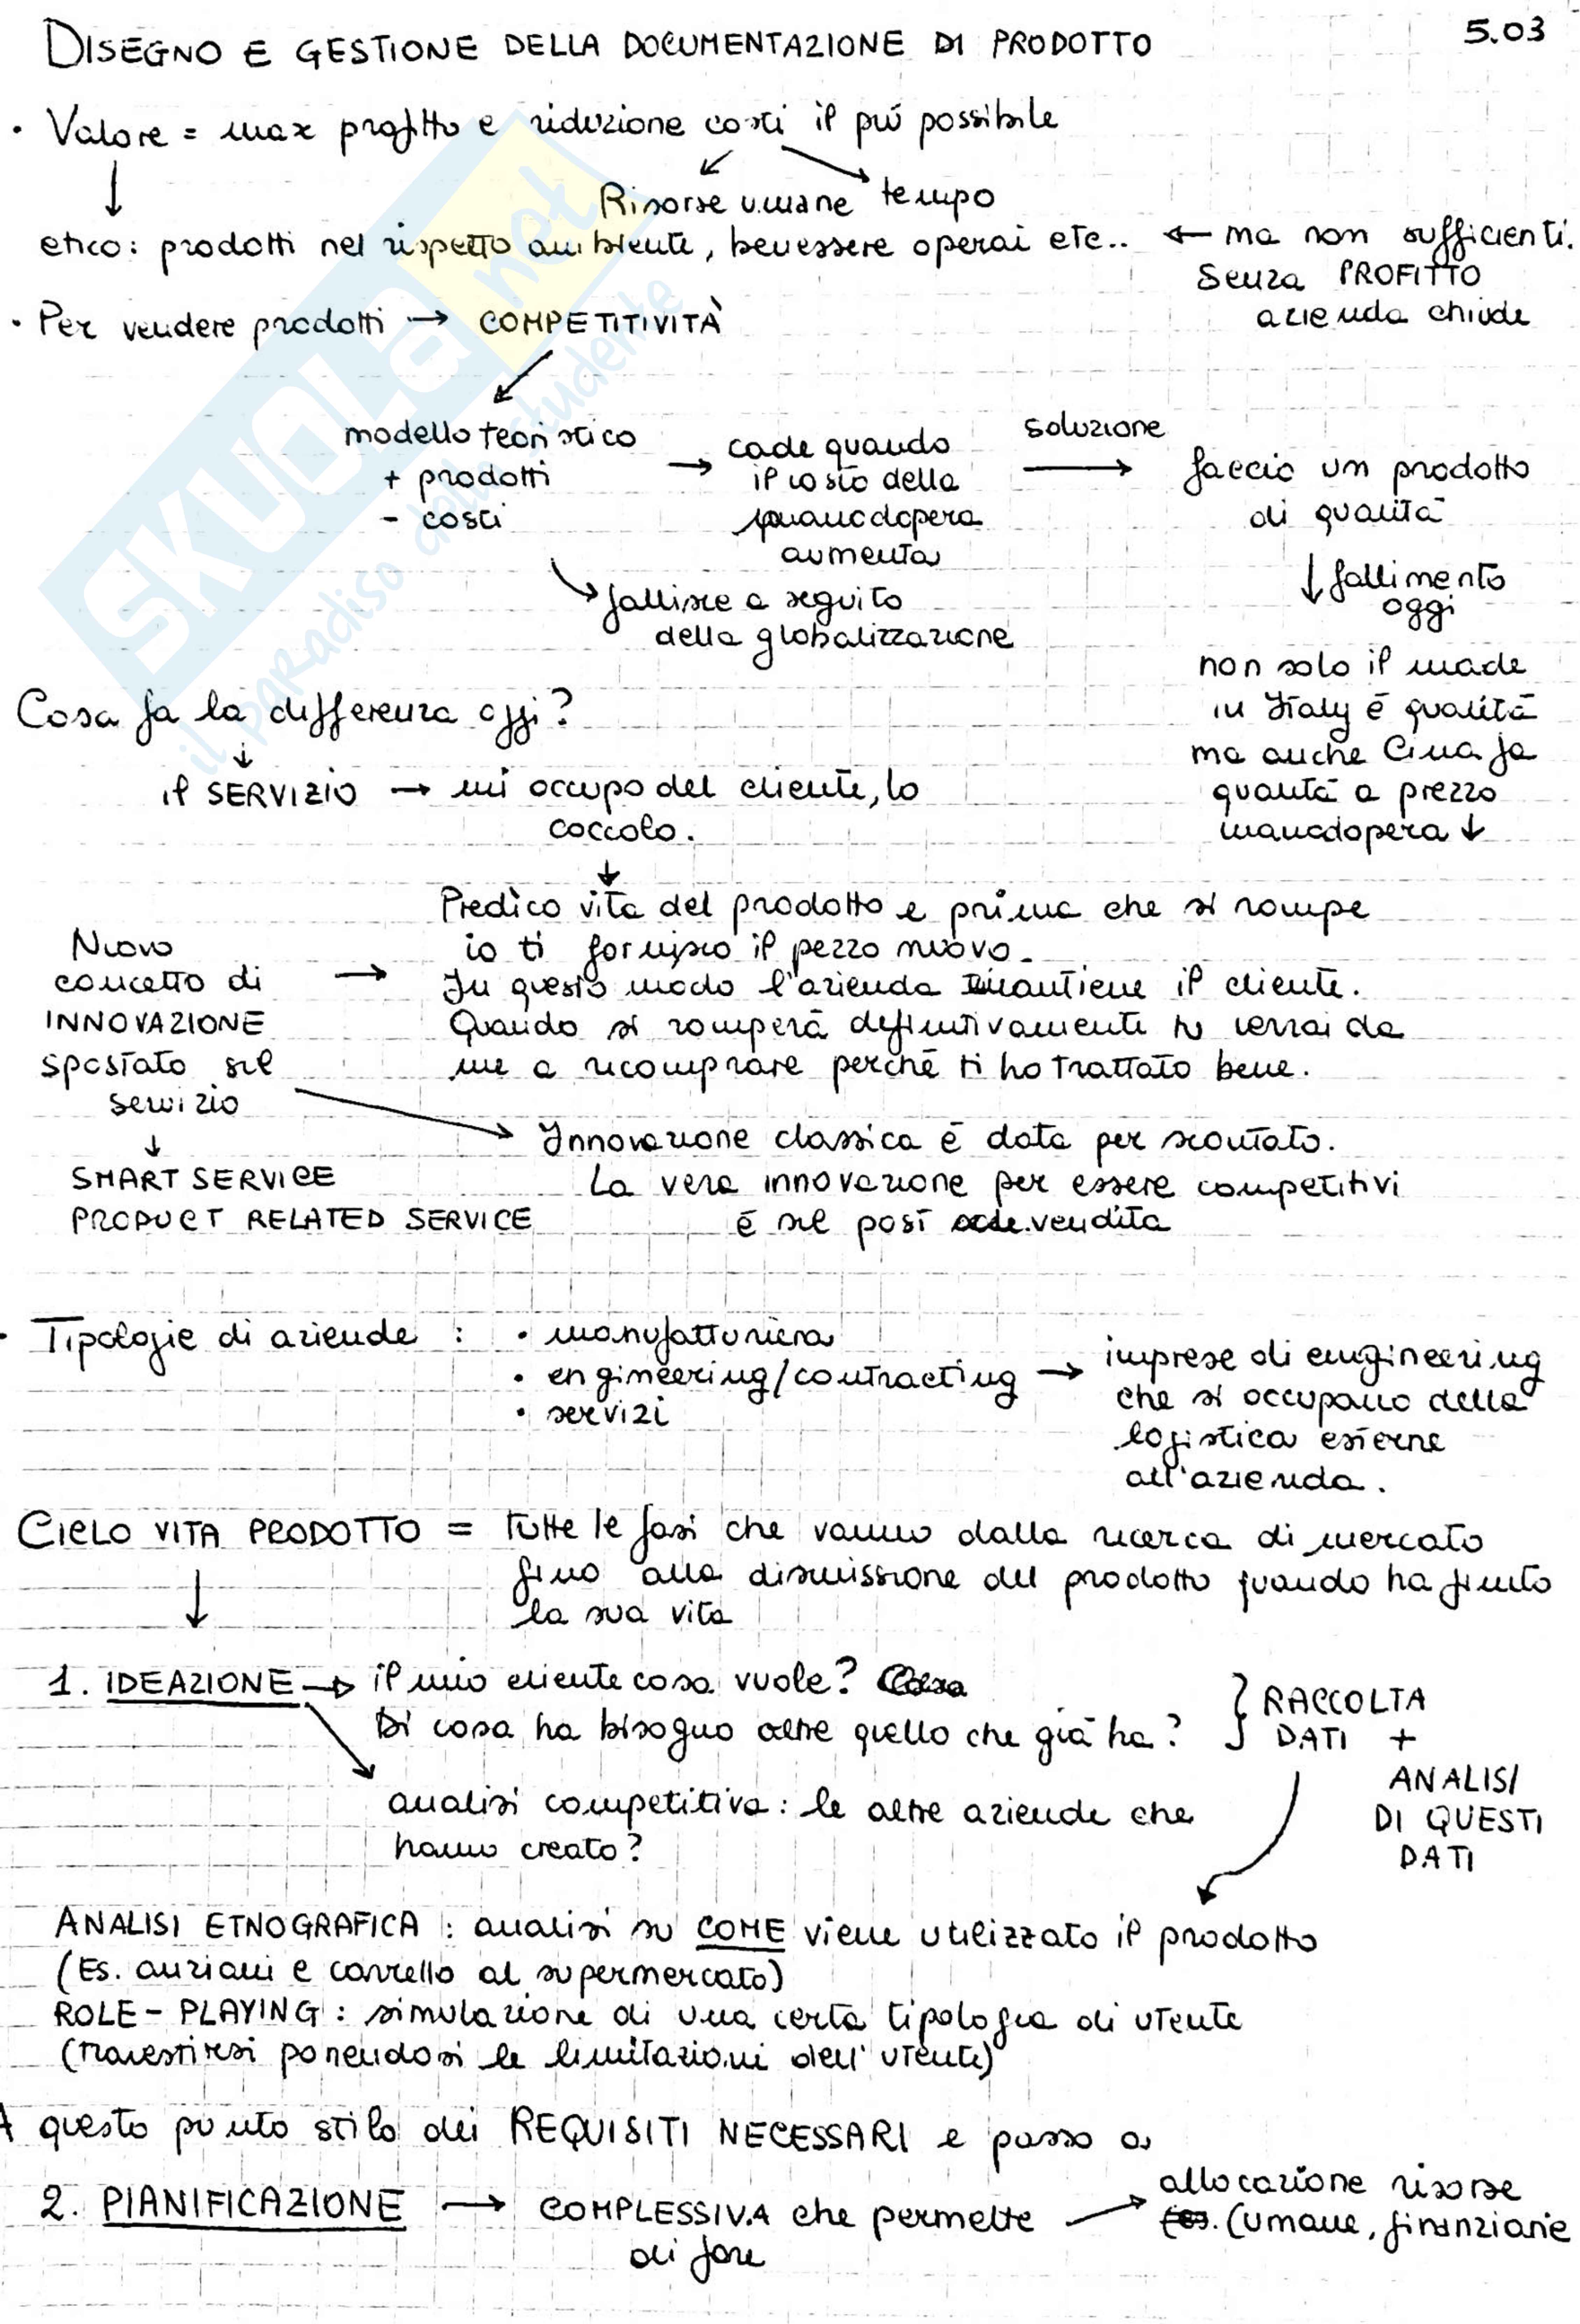 DISEGNO E GESTIONE DELLA DOCUMENTAZIONE DI PRODOTTO
5.03
• Valore = max profitto e riduzione costi il più possibile
Risorse umane tempo
etico: prodotti nel rispetto ambiente, benessere operai etc.. ← ma non sufficienti.
Senza PROFITTO
azienda chiude
• Per vendere prodotti → COMPETITIVITÀ
modello teoristico
+ prodotti
- costi
→ cade quando
il costo della
manodopera
aumenta
soluzione
→ faccio un prodotto
di qualità
↓ fallimento
oggi
fallisce a seguito
della globalizzazione
non solo il made
in Italy è qualità
ma anche Cina fa
qualità a prezzo
manodopera ↓
Cosa fa la differenza oggi?
↓
il SERVIZIO → mi occupo del cliente, lo
coccolo.
↓
Nuovo
concetto di
INNOVAZIONE
spostato sul
servizio
↓
SMART SERVICE
PRODUCT RELATED SERVICE
→ Predico vita del prodotto e prima che si rompe
io ti fornisco il pezzo nuovo.
In questo modo l'azienda mantiene il cliente.
Quando si romperà definitivamente tu verrai da
me a ricomprare perchè ti ho trattato bene.
Innovazione classica è data per scontato.
La vera innovazione per essere competitivi
è sul post vendita
• Tipologie di aziende : • manufatturiera
• engineering/contracting → imprese di engineering
che si occupano della
logistica esterne
all'azienda.
• servizi
CICLO VITA PRODOTTO = tutte le fasi che vanno dalla ricerca di mercato
fino alla dismissione del prodotto quando ha finito
la sua vita
↓
1. IDEAZIONE → il mio cliente cosa vuole? Cosa
Di cosa ha bisogno oltre quello che già ha?
} RACCOLTA
DATI +
ANALISI
DI QUESTI
DATI
analisi competitiva: le altre aziende che
hanno creato?
ANALISI ETNOGRAFICA : analisi su COME viene utilizzato il prodotto
(Es. anziani e carrello al supermercato)
ROLE-PLAYING : simulazione di una certa tipologia di utente
(travestirsi ponendosi le limitazioni dell'utente)
A questo punto stilo dei REQUISITI NECESSARI e passo a
2. PIANIFICAZIONE → COMPLESSIVA che permette
di fare
allocazione risorse
(umane, finanziarie
SKUOLA.net
il paradiso dello studente